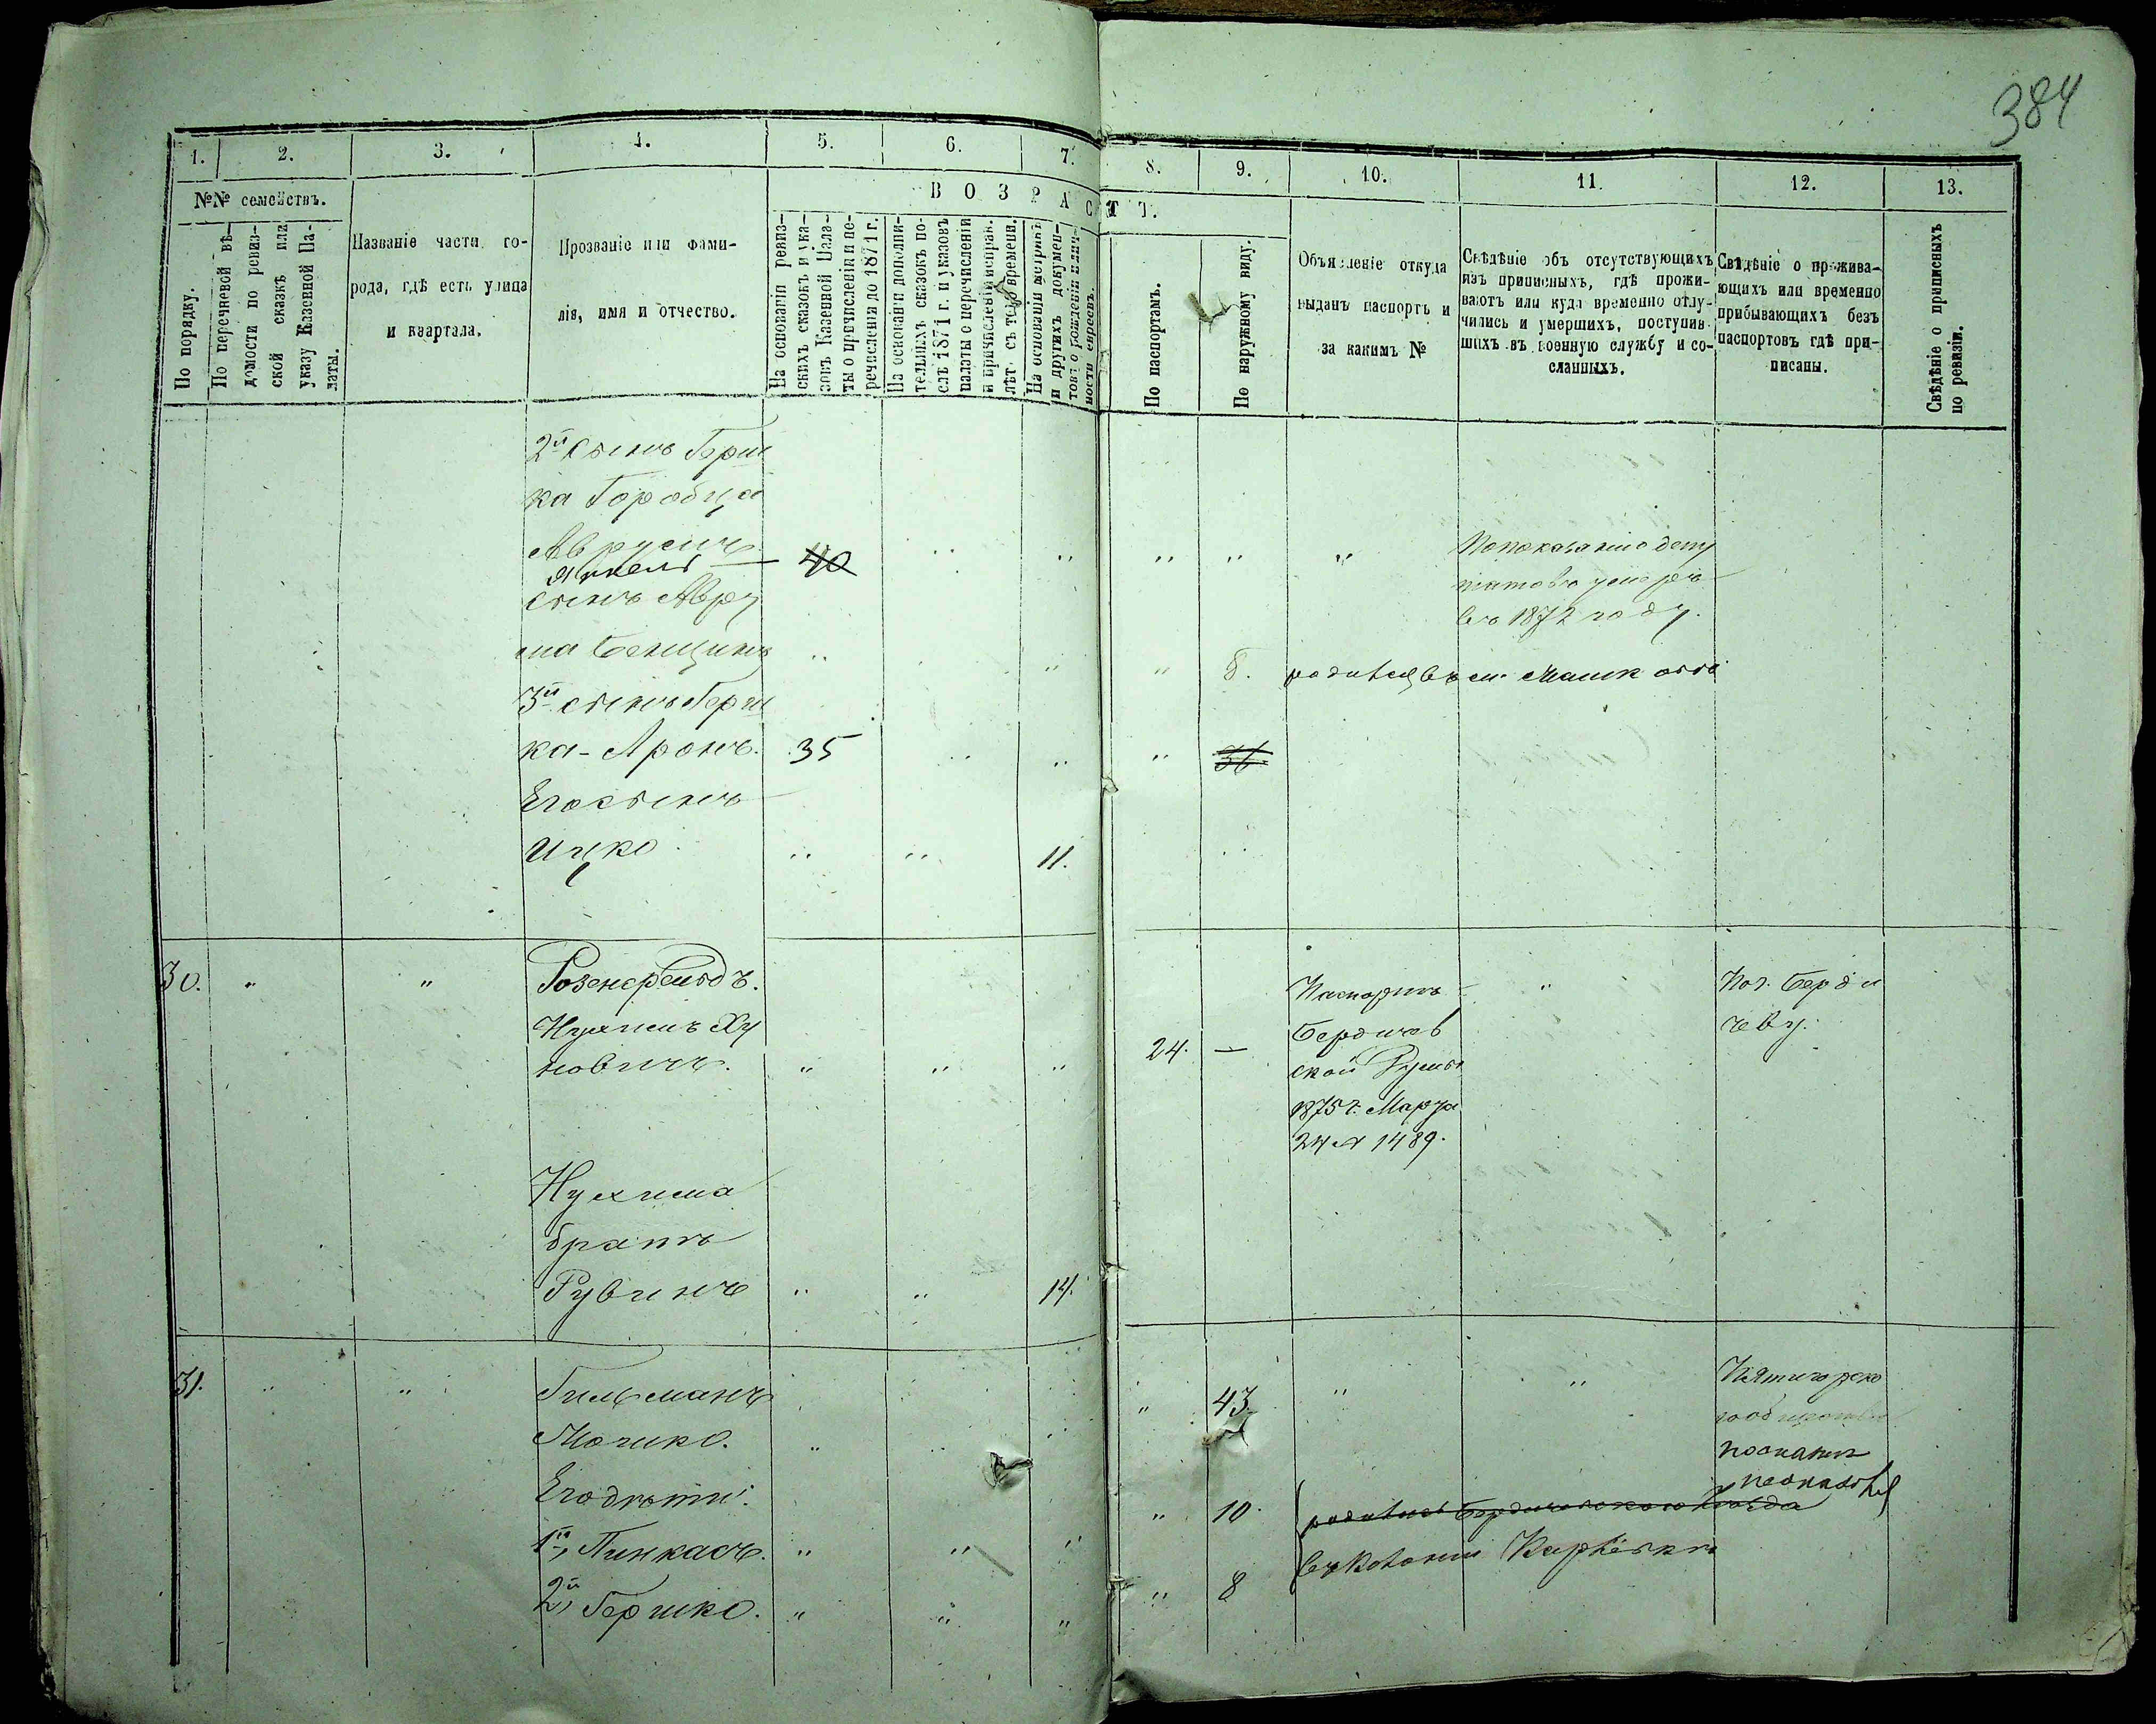 384
1. 2. 3. 4. 5. 6. 7. 8. 9. 10. 11. 12. 13.
№№ семействъ.
По порядку.
По перечневой вѣ-
домости по ревиз-
ской сказкѣ или
указу Казенной Па-
латы.
Названіе части го-
рода, гдѣ есть улица
и квартала.
Прозваніе или фами-
лія, имя и отчество.
ВОЗРАСТ Т.
На основаніи ревиз-
скихъ сказокъ и ука-
зовъ Казенной Пала-
ты о причисленіи и пе-
речисленіи до 1871 г.
На основаніи дополни-
тельныхъ сказокъ по-
слѣ 1871 г. и указовъ
палаты о перечисленіи
и причисленіи исправ.
лѣт съ того времени.
На основаніи метрикъ
и другихъ докумен-
товъ о рожденіи и лич-
ности евреевъ.
По паспортамъ.
По наружному виду.
Объясненіе откуда
выданъ паспортъ и
за какимъ №
Свѣдѣніе объ отсутствующихъ
изъ приписныхъ, гдѣ прожи-
ваютъ или куда временно отлу-
чились и умершихъ, поступив-
шихъ въ военную службу и со-
сланныхъ.
Свѣдѣніе о прожива-
ющихъ или временно
прибывающихъ безъ
паспортовъ гдѣ при-
писаны.
Свѣдѣніе о приписныхъ
по ревизіи.
2й Сынъ Герш
ка Горобца
Аврумъ 40 " " " " "
По показанію депу
татовъ умеръ
въ 1872 году.
сынъ Авру
ма Бенціинъ " " " 8.
3й сынъ Герш
ка - Аронъ. 35 " " " 36
Его сынъ
Ицко " " 11.
30. " " Розенфельдъ.
Нухимъ Ху
новичъ. " " " 24. —
Паспортъ
Бердичев
ской Думы
1875 г. Марта
24 № 1489.
"
По г. Берди
чеву.
Нухима
братъ
Рувинъ " " 14.
31. " " Гильманъ
Мошко. " " " " 43. " "
Пятигорско
го общества
Его дѣти:
1й, Пинкасъ. " " " " 10.
2й, Гершко. " " " " 8